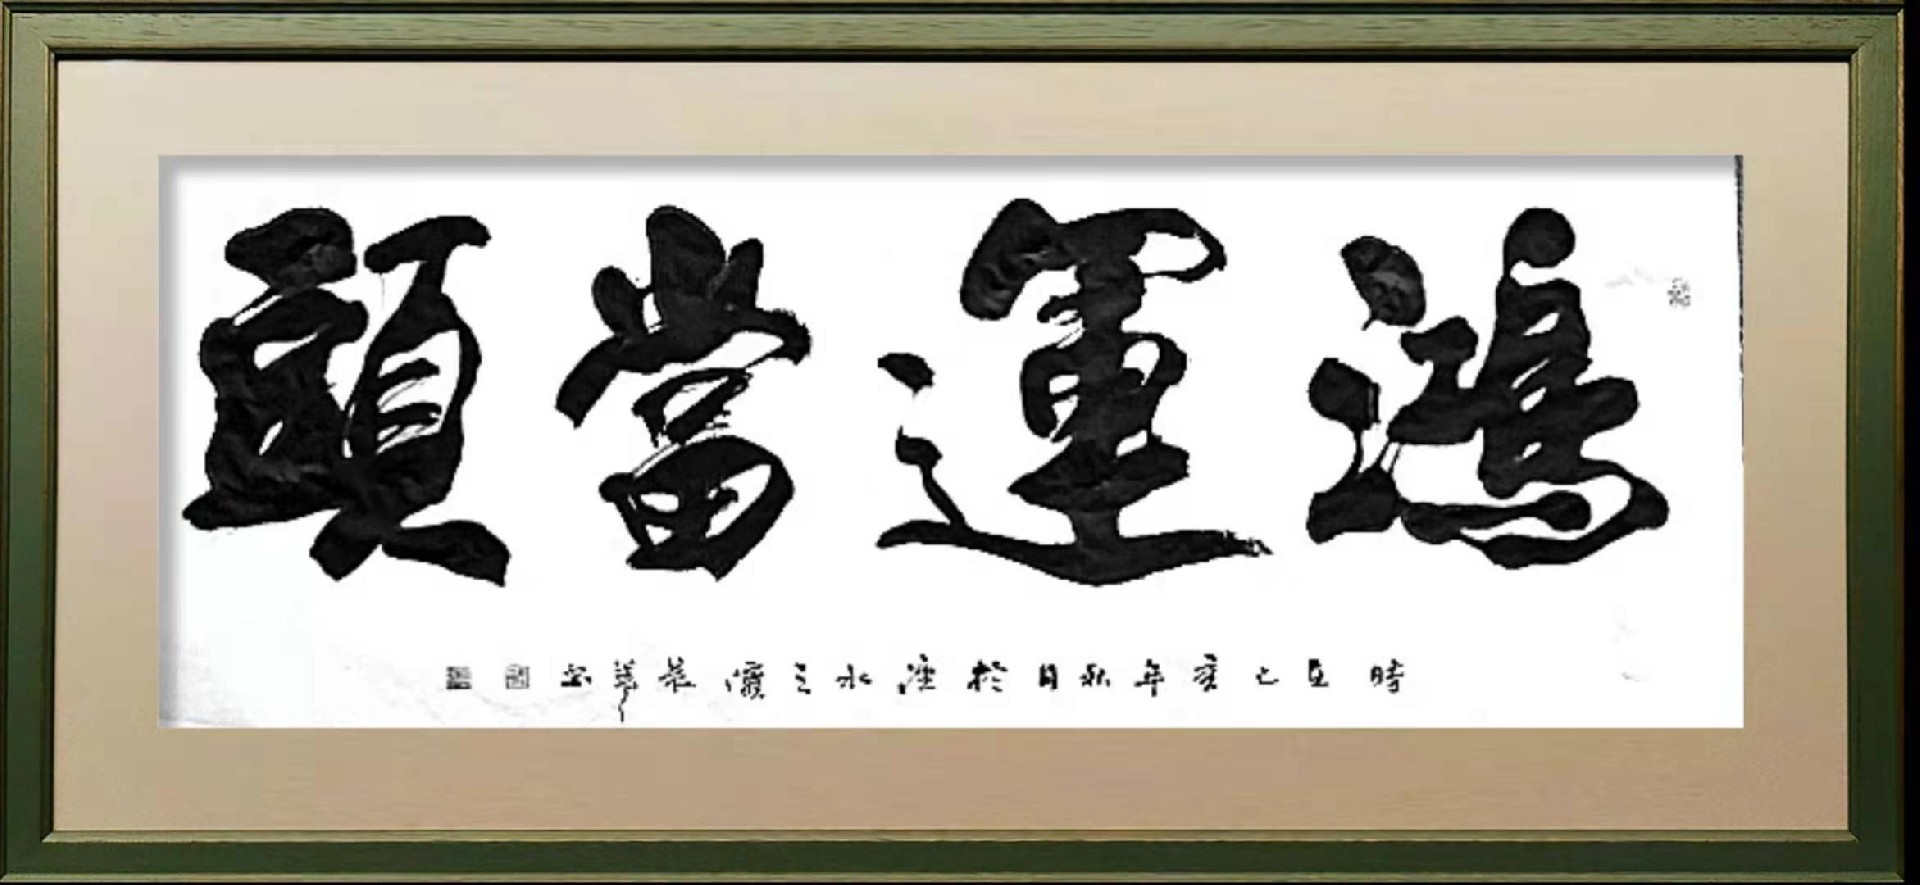 鴻運當頭
時在己亥年秋日於淮水之濱晨華書